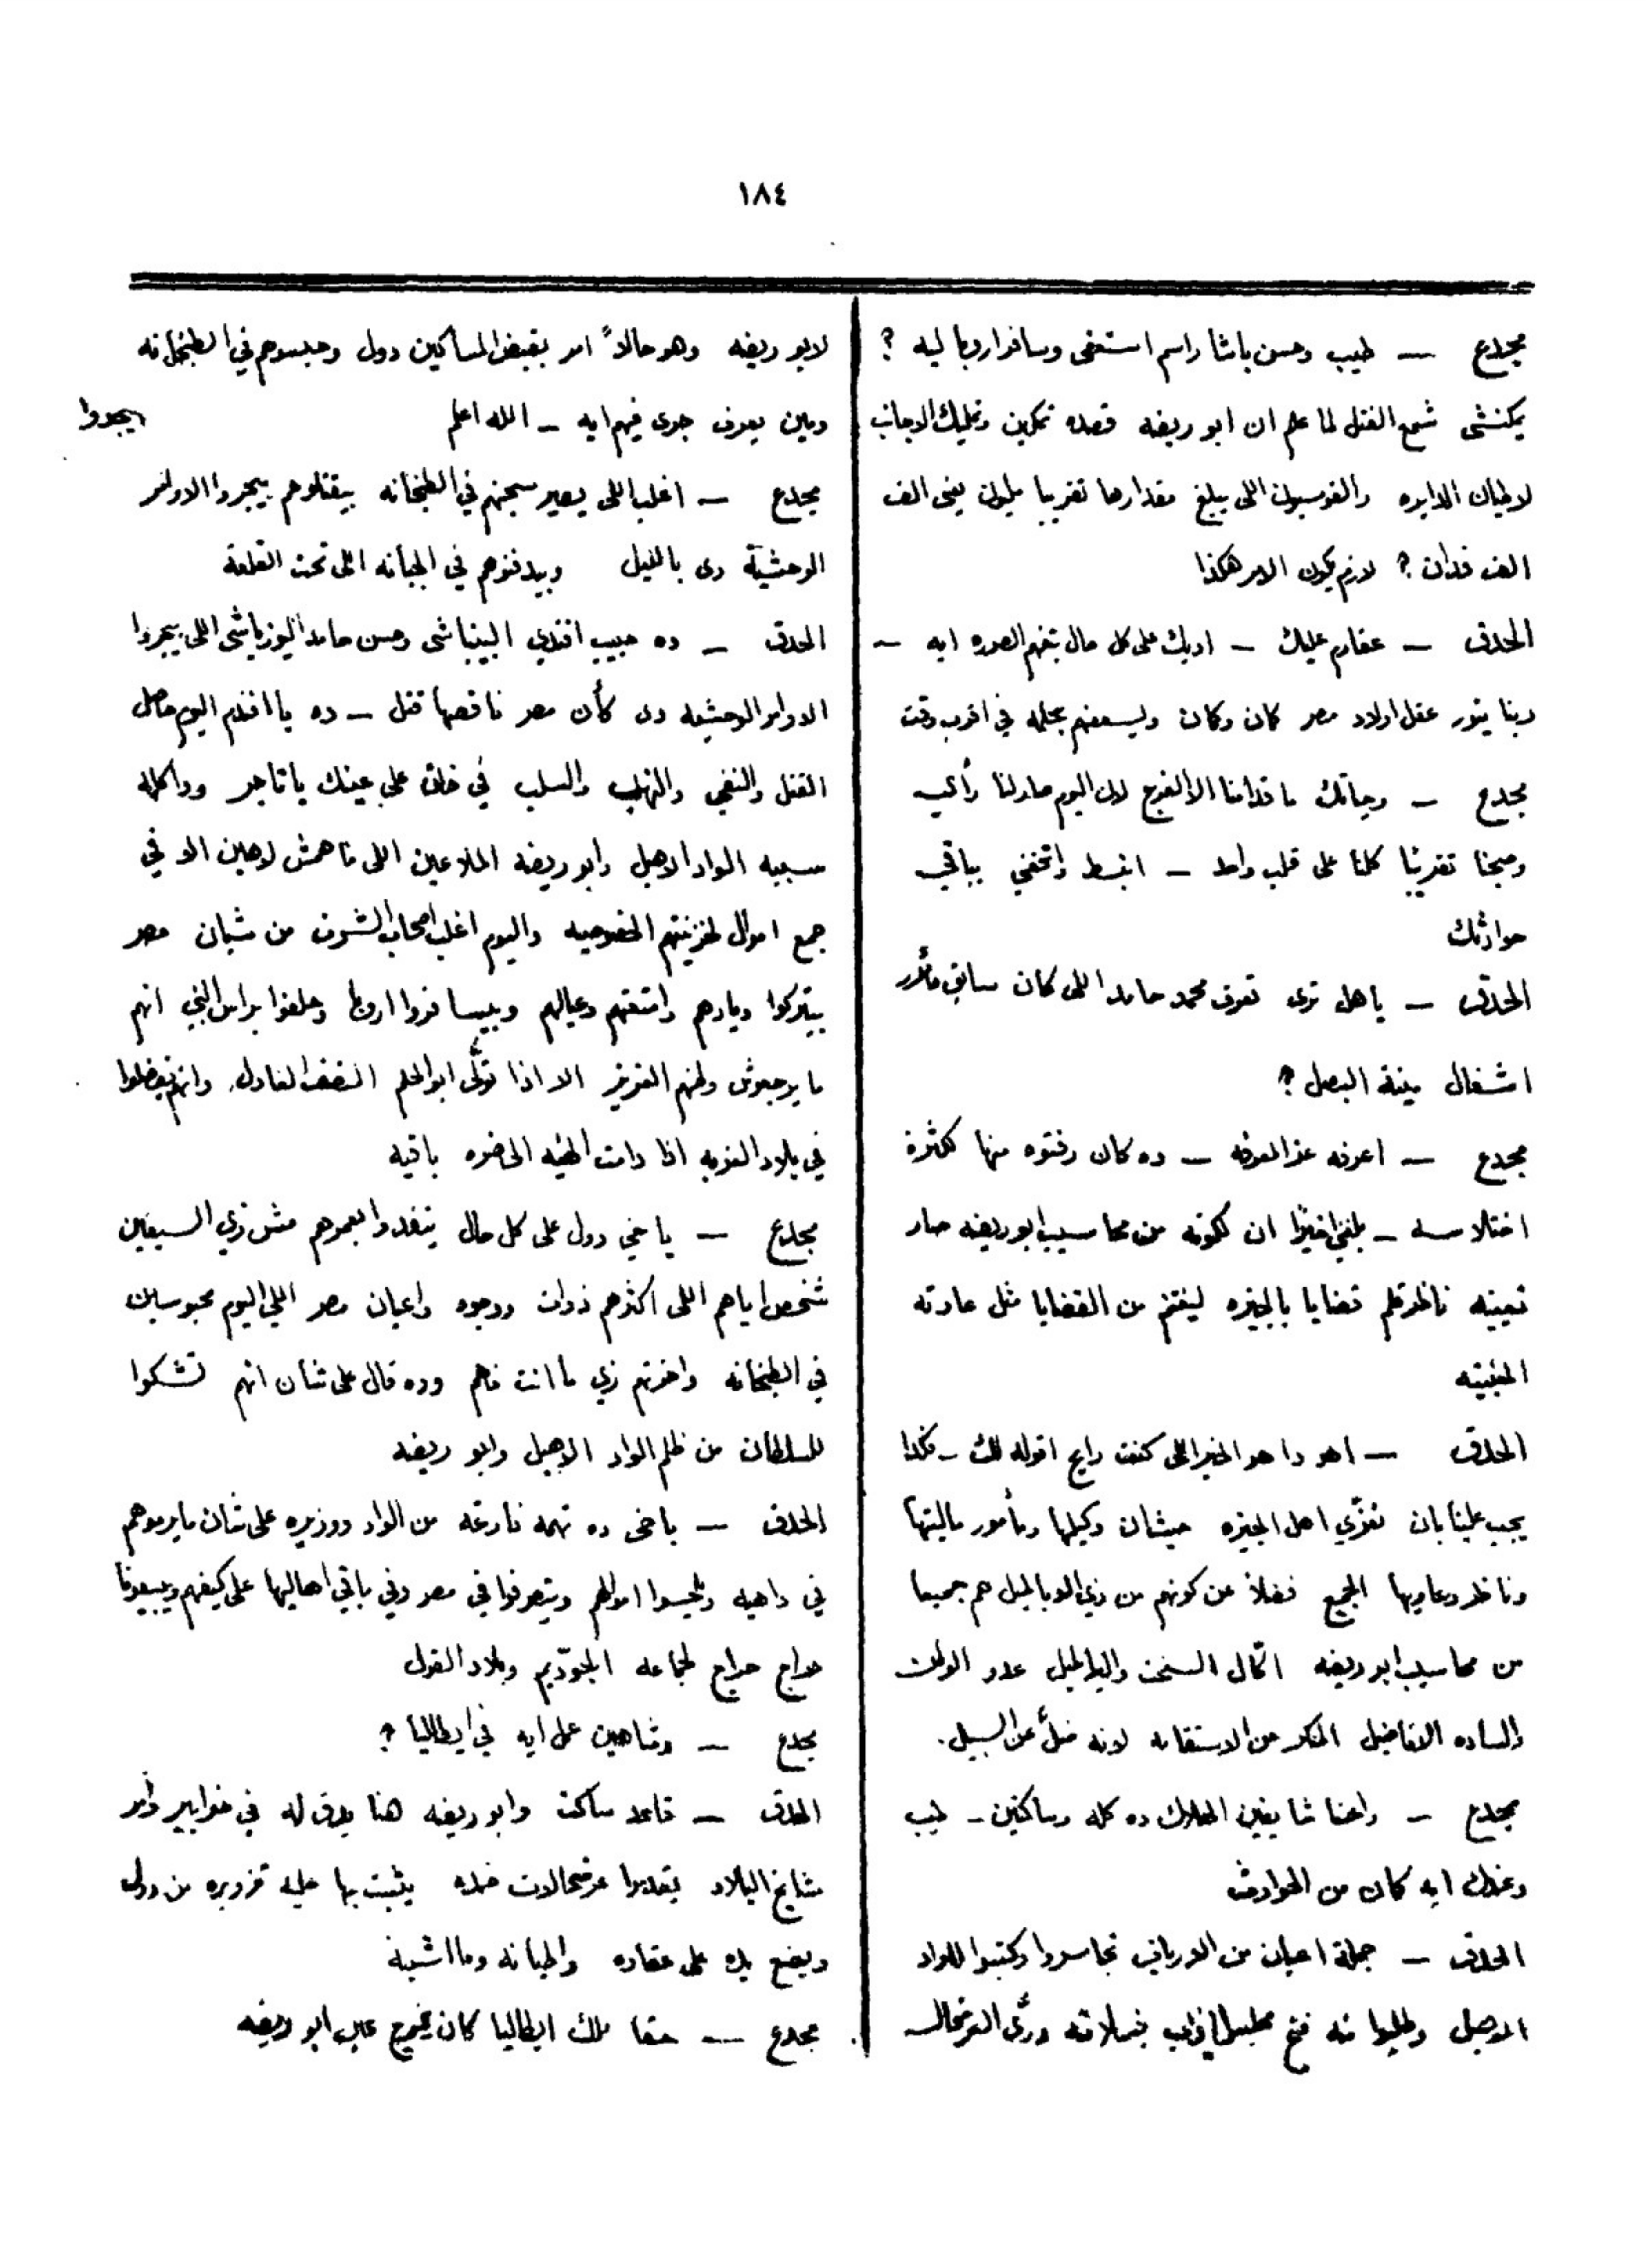 ١٨٤
مجدع — طيب وحسن باشا راسم استعفى وسافر اروبا ليه ؟
يمكنشي شمع الفتل لما علم ان ابو ريضه قصده تمكين وتمليك الاجانب
لاطيان الدايره والقومسيون اللى يبلغ مقدارها تقريبا مليون يعنى الف
الف فدان ؟ لازم يكون الامر هكذا
الحدق — عفارم عليك — اديك على كل حال بتفهم الصوره ايه —
ربنا ينور عقل اولاد مصر كان وكان ويسعفهم بحلمه في اقرب وقت
مجدع — وحياتك ما قدامنا الا الفرج لان اليوم صار لنا رأي
وصحنا تقريبًا كلنا على قلب واحد — انبسط واتحفني بباقي
حوادثك
الحدق — ياهل ترى تعرف محمد حامد اللى كان سابق مأمور
اشغال مينة البصل ؟
مجدع — اعرفه عز المعرفه — ده كان رفتوه منها لكثرة
اختلاسه — بلغني اخيرًا ان لكونه من محاسيب ابو ريضه صار
تعيينه ناظر قلم قضايا بالجيزه ليغتنم من القضايا مثل عادته
الحدق — اهو دا هو الخبر اللى كنت رايح اقوله لك — فكدا
يجب علينا بان نعزّي اهل الجيزه حيثان وكيلها ومأمور ماليتها
وناظر دعاويها الجميع فضلاً عن كونهم من ذي الوبا لميل هم جميعا
من محاسيب ابو ريضه اكال السحت والبراطيل عدو الوطن
والساده الافاضيل المنكر من الاستقامه لانه ضلّ عن السبيل .
مجدع — واحنا شايفين الهلاك ده كله وساكتين — طيب
وعندك ايه كمان من الحوادث
الحدق — جملة اعيان من الارياف تجاسروا وكتبوا للواد
الاهبل وطلبوا منه فتح مجلس النواب فبسلامته ورّى العرضحال
لابو ريضه وهو حالاً امر بقبض المساكين دول وحبسوهم في الطبخانه
ومين يعرف جرى فيهم ايه — الله اعلم
مجدع — اغلب اللى يصير سجنهم في الطبخانه بيقتلوهم بيجروا الاوامر
الوحشية دى بالليل وبيدفنوهم في الجبانه اللى تحت القلعة
الحدق — ده حبيب افندي البينباشى وحسن حامد اليوزباشى اللى بيجروا
الاوامر الوحشيه دى كأن مصر ناقصها قتل — ده يا افندم اليوم حاصل
القتل والنفي والنهب والسلب في خلق على عينك ياتاجر ودا كله
سببه الواد الاهبل وابو ريضه الملاعين اللى ماهمش لاهيين الا في
جمع اموال لخزينتهم الخصوصيه واليوم اغلب اصحاب الشرف من شبان مصر
بيتركوا ديارهم وامتعتهم وعيالهم وبيسافروا اروبا وحلفوا براس النبي انهم
ما يرجعوش وطنهم العزيز الا اذا تولّى ابو الحلم المنصف العادل وانهم يفضلوا
في بلاد الغربه اذا دامت الهيئه الحاضره باقيه
مجدع — ياخي دول على كل حال ينفدوا بعمرهم مش زي السبعين
شخص اياهم اللى اكثرهم ذوات ووجوه واعيان مصر اللي اليوم محبوسين
في الطبخانه واخرتهم زي ما انت فاهم وده قال على شان انهم تشكوا
للسلطان من ظلم الواد الاهبل وابو ريضه
الحدق — ياخى ده تهمه فارغه من الواد ووزيره على شان ما يرموهم
في داهيه ويلحسوا اموالهم ويتصرفوا في مصر وفي باقي اهاليها على كيفهم ويبيعونا
حراج حراج لجماعه
مجدع — وشاهين عمل ايه في ايطاليا ؟
الحدق — قاعد ساكت وابو ريضه هنا يدق له في خوابير وأمر
مشايخ البلاد يقدموا عرضحالات ضده يثبت بها عليه تزويره من دول
ويضع يده على عقاره واطيانه وما اشبه
مجدع — حقا ملك ايطاليا كان يخرج عين ابو ريضه